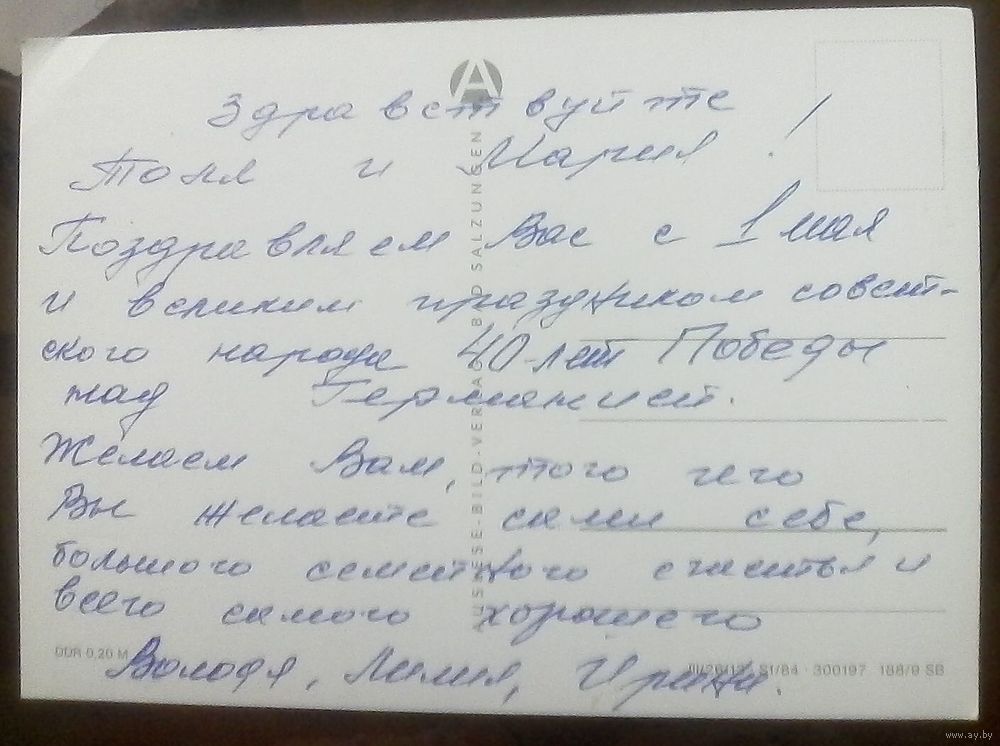 Здравствуйте
Толя и Мария!
Поздравляем Вас с 1 мая
и великим праздником совет-
ского народа 40-лет Победы
над Германией.
Желаем Вам, того чего
Вы желаете сами себе,
большого семейного счастья и
всего самого хорошего
Володя, Лилия, Ирина.
A
BILD-VERLAG BAD SALZUNGEN
DDR 0,20 M
S1/84 · 300197 188/9 SB
www.ay.by